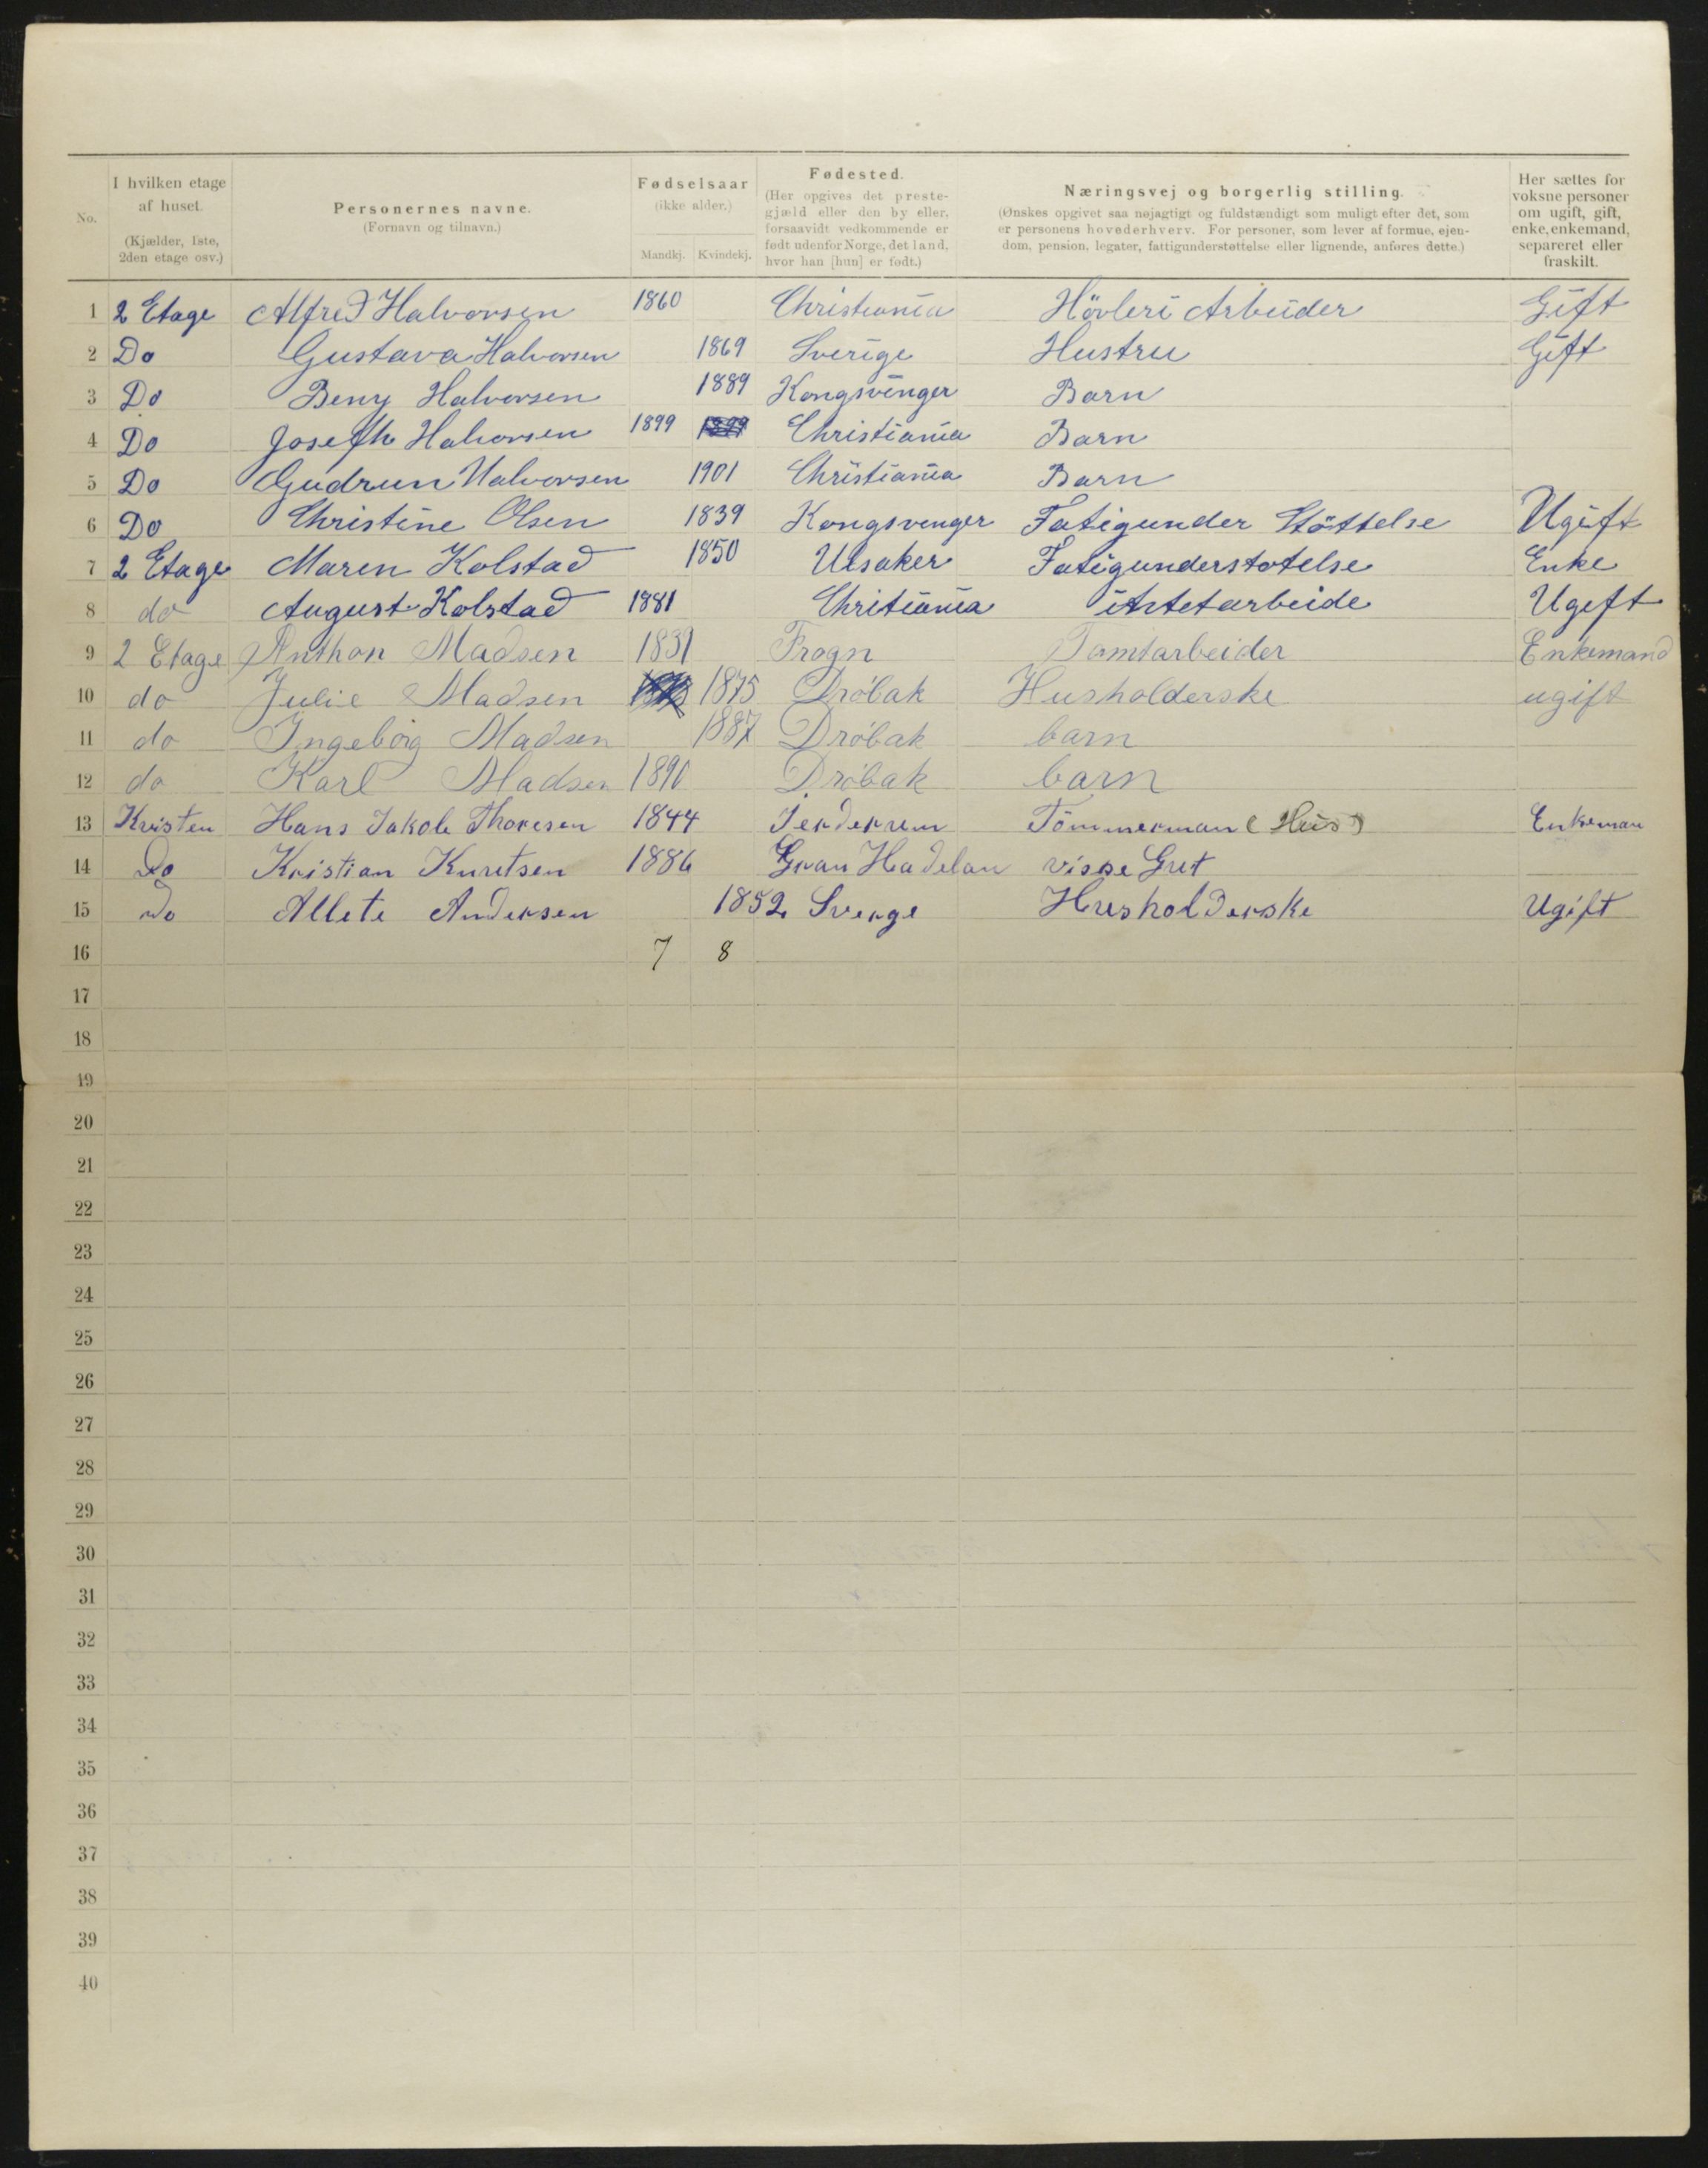 No. I hvilken etage af huset. (Kjælder, 1ste, 2den etage osv.) Personernes navne. (Fornavn og tilnavn.) Fødselsaar (ikke alder.) Mandkj. Kvindekj. Fødested. (Her opgives det prestegjæld eller den by eller, forsaavidt vedkommende er født udenfor Norge, det land, hvor han [hun] er født.) Næringsvej og borgerlig stilling. (Ønskes opgivet saa nøjagtigt og fuldstændigt som muligt efter det, som er personens hovederhverv. For personer, som lever af formue, ejendom, pension, legater, fattigunderstøttelse eller lignende, anføres dette.) Her sættes for voksne personer om ugift, gift, enke, enkemand, separeret eller fraskilt.
1 2 Etage Alfred Halvorsen 1860 Christiania Hövleri Arbeider Gift
2 Do Gustava Halvorsen 1869 Sverige Hustru Gift
3 Do Beny Halvorsen 1889 Kongsvinger Barn
4 Do Josefh Halvorsen 1899 1899 Christiania Barn
5 Do Gudrun Halvorsen 1901 Christiania Barn
6 Do Christine Olsen 1839 Kongsvenger Fatigunder Stöttelse Ugift
7 2 Etage Maren Kolstad 1850 Ulsaker Fatigunderstotelse Enke
8 do August Kolstad 1881 Chritiania Ugift
9 2 Etage Anthon Madsen 1831 Frogn Tomtarbeider Enkemand
10 do Julie Madsen 1875 Drøbak Husholderske ugift
11 do Ingeborg Madsen 1887 Drøbak barn
12 do Karl Madsen 1890 Drøbak barn
13 Kvisten Hans Jakob Thoresen 1844 Tömmerman (Hus) Enkeman
14 Do Kristian Knutsen 1886 Gran Hadelan visse Gret
15 Do Allete Andersen 1852 Sverge Husholderske Ugift
16 7 8
17
18
19
20
21
22
23
24
25
26
27
28
29
30
31
32
33
34
35
36
37
38
39
40